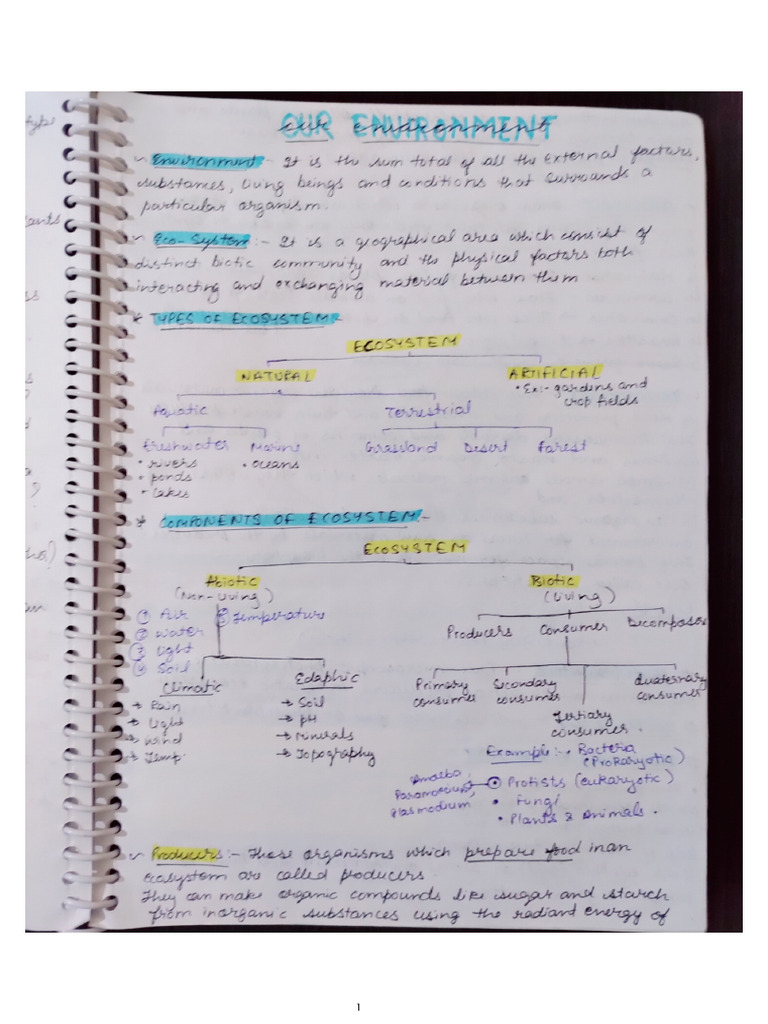 OUR ENVIRONMENT
Environment - It is the sum total of all the External factors,
substances, living beings and conditions that surrounds a
particular organism.
Eco-System :- It is a geographical area which consist of
distinct biotic community and the physical factors both
interacting and exchanging material between them
* TYPES OF ECOSYSTEM -
ECOSYSTEM
NATURAL
ARTIFICIAL
• Ex:- gardens and
crop fields
Aquatic
Terrestrial
Freshwater
Marine
Grassland
Desert
Forest
• rivers
• oceans
• ponds
• Lakes
* COMPONENTS OF ECOSYSTEM -
ECOSYSTEM
Abiotic
(Non-living)
Biotic
(Living)
① Air
⑤ Temperature
② Water
③ Light
④ Soil
Producers
Consumer
Decomposer
Climatic
→ Rain
→ Light
→ Wind
→ Temp.
Edaphic
→ Soil
→ pH
→ Minerals
→ Topography
Primary
consumer
Secondary
consumer
Tertiary
consumer
Quaternary
consumer
Example:- • Bacteria
(Prokaryotic)
Amoeba,
Paramoecium,
Plasmodium
• Protists (eukaryotic)
• Fungi
• Plants & Animals.
Producers :- Those organisms which prepare food in an
ecosystem are called producers
They can make organic compounds like sugar and starch
from inorganic substances using the radiant energy of
1